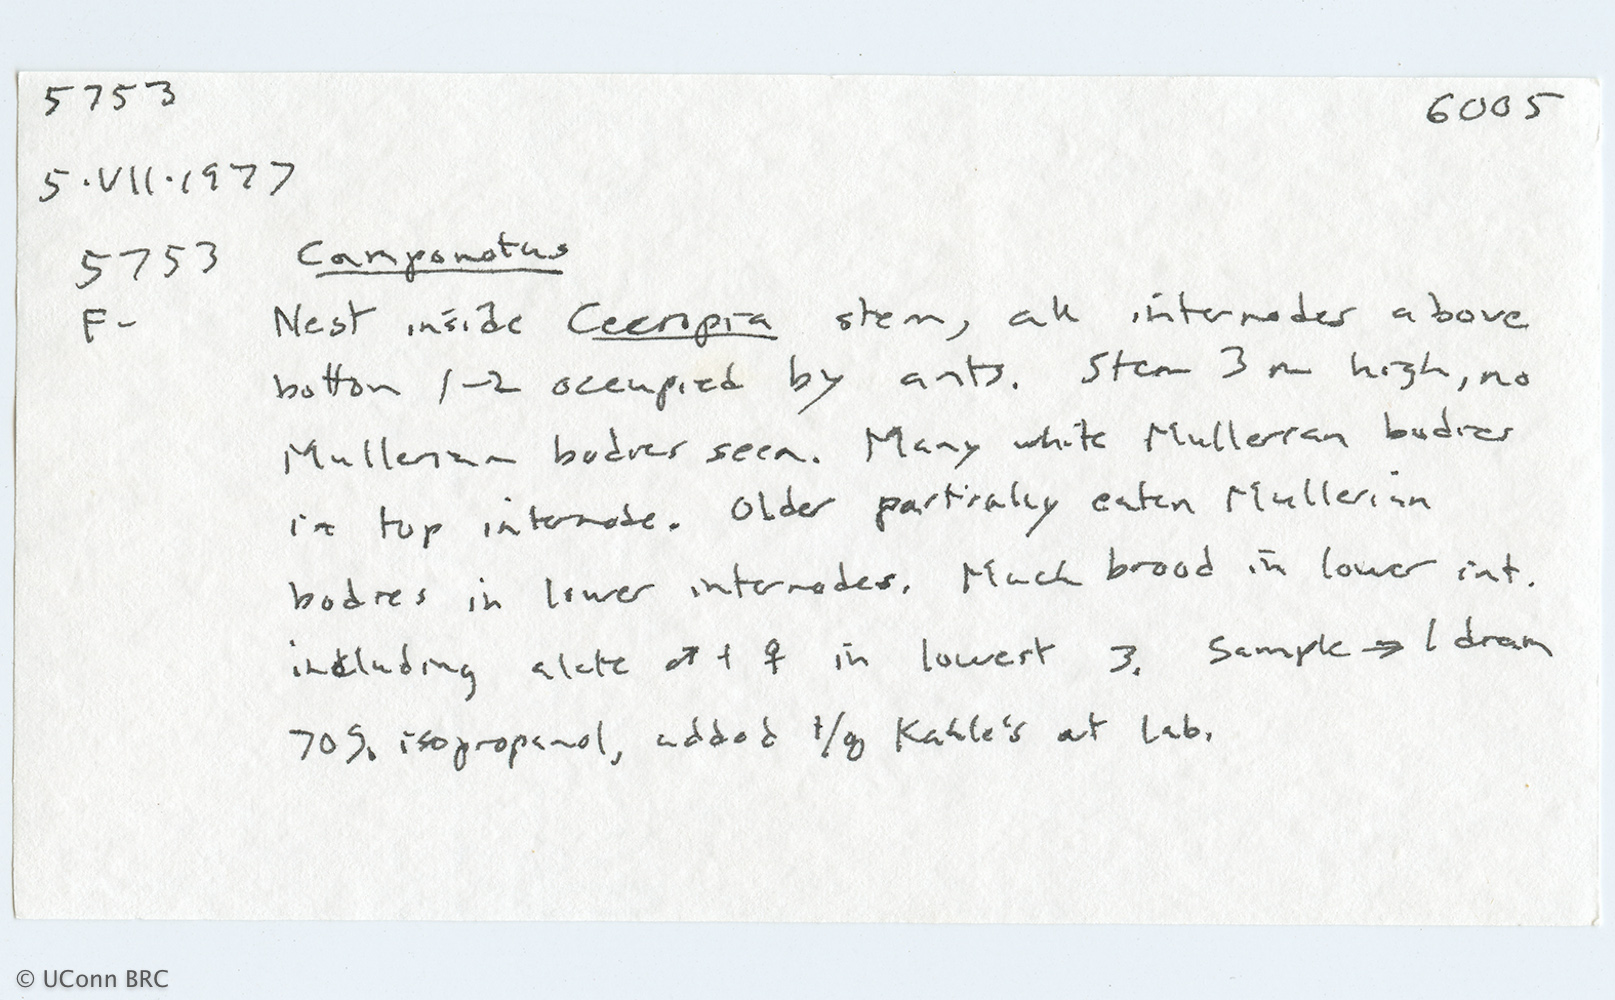 5753 6005
5·VII·1977
5753 Camponotus
F- Nest inside Cecropia stem, all internodes above
bottom 1-2 occupied by ants. Stem 3 m high, no
Mullerian bodies seen. Many white Mullerian bodies
in top internode. Older partially eaten Mullerian
bodies in lower internodes. Much brood in lower int.
including alate ♂ + ♀ in lowest 3. Sample → 1 dram
70% isopropanol, added Kahle's at lab.
© UConn BRC